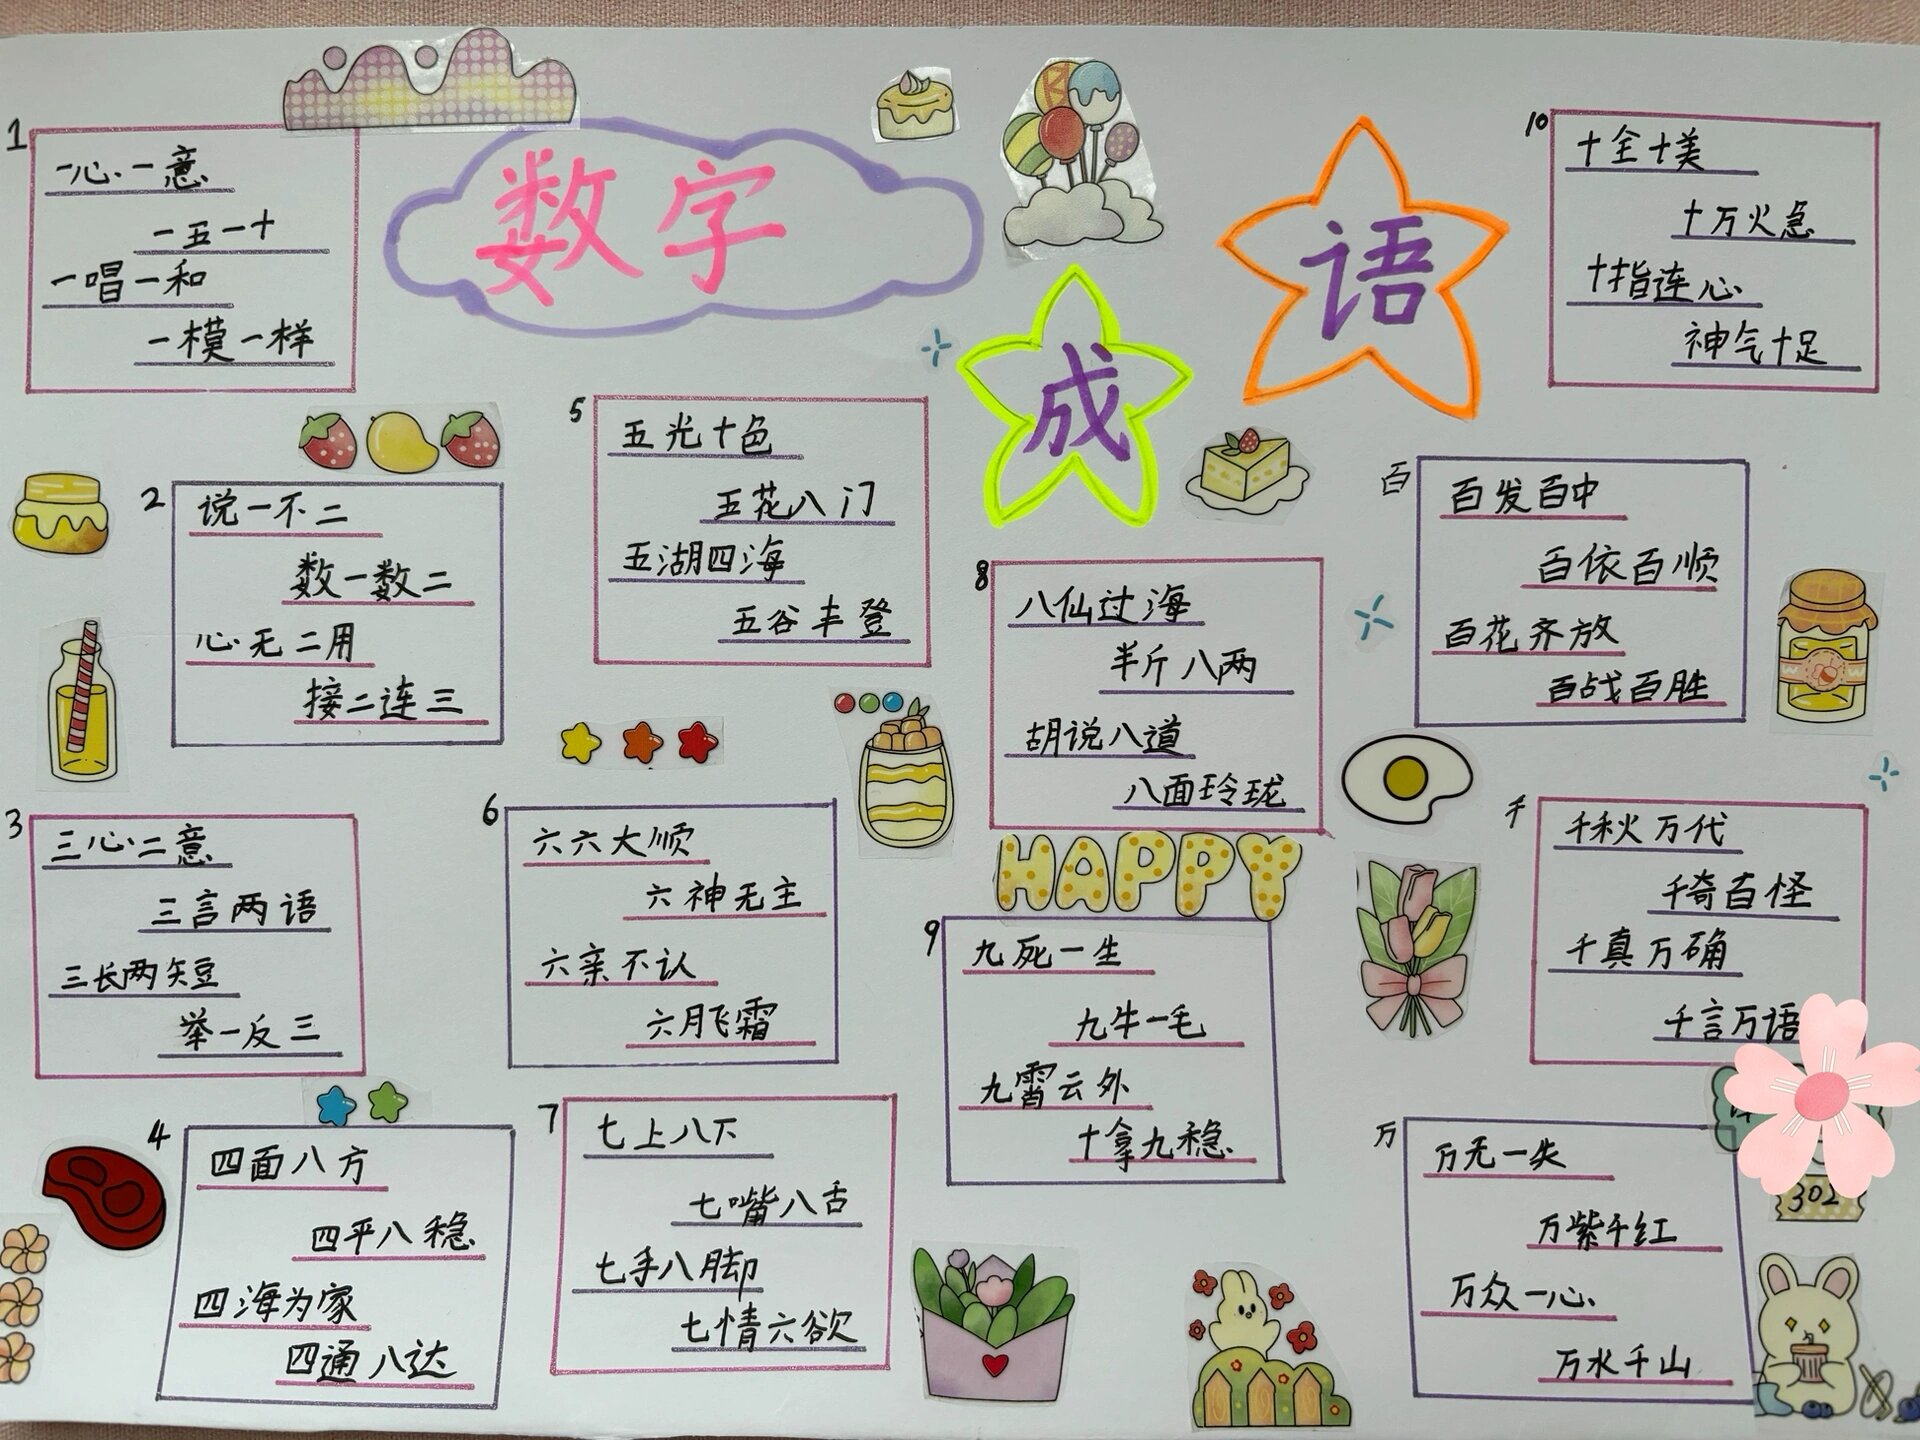 数字
成
语
1
一心一意
一五一十
一唱一和
一模一样
2
说一不二
数一数二
心无二用
接二连三
3
三心二意
三言两语
三长两短
举一反三
4
四面八方
四平八稳
四海为家
四通八达
5
五光十色
五花八门
五湖四海
五谷丰登
6
六六大顺
六神无主
六亲不认
六月飞霜
7
七上八下
七嘴八舌
七手八脚
七情六欲
8
八仙过海
半斤八两
胡说八道
八面玲珑
HAPPY
9
九死一生
九牛一毛
九霄云外
十拿九稳
10
十全十美
十万火急
十指连心
神气十足
百
百发百中
百依百顺
百花齐放
百战百胜
千
千秋万代
千奇百怪
千真万确
千言万语
万
万无一失
万紫千红
万众一心
万水千山
302